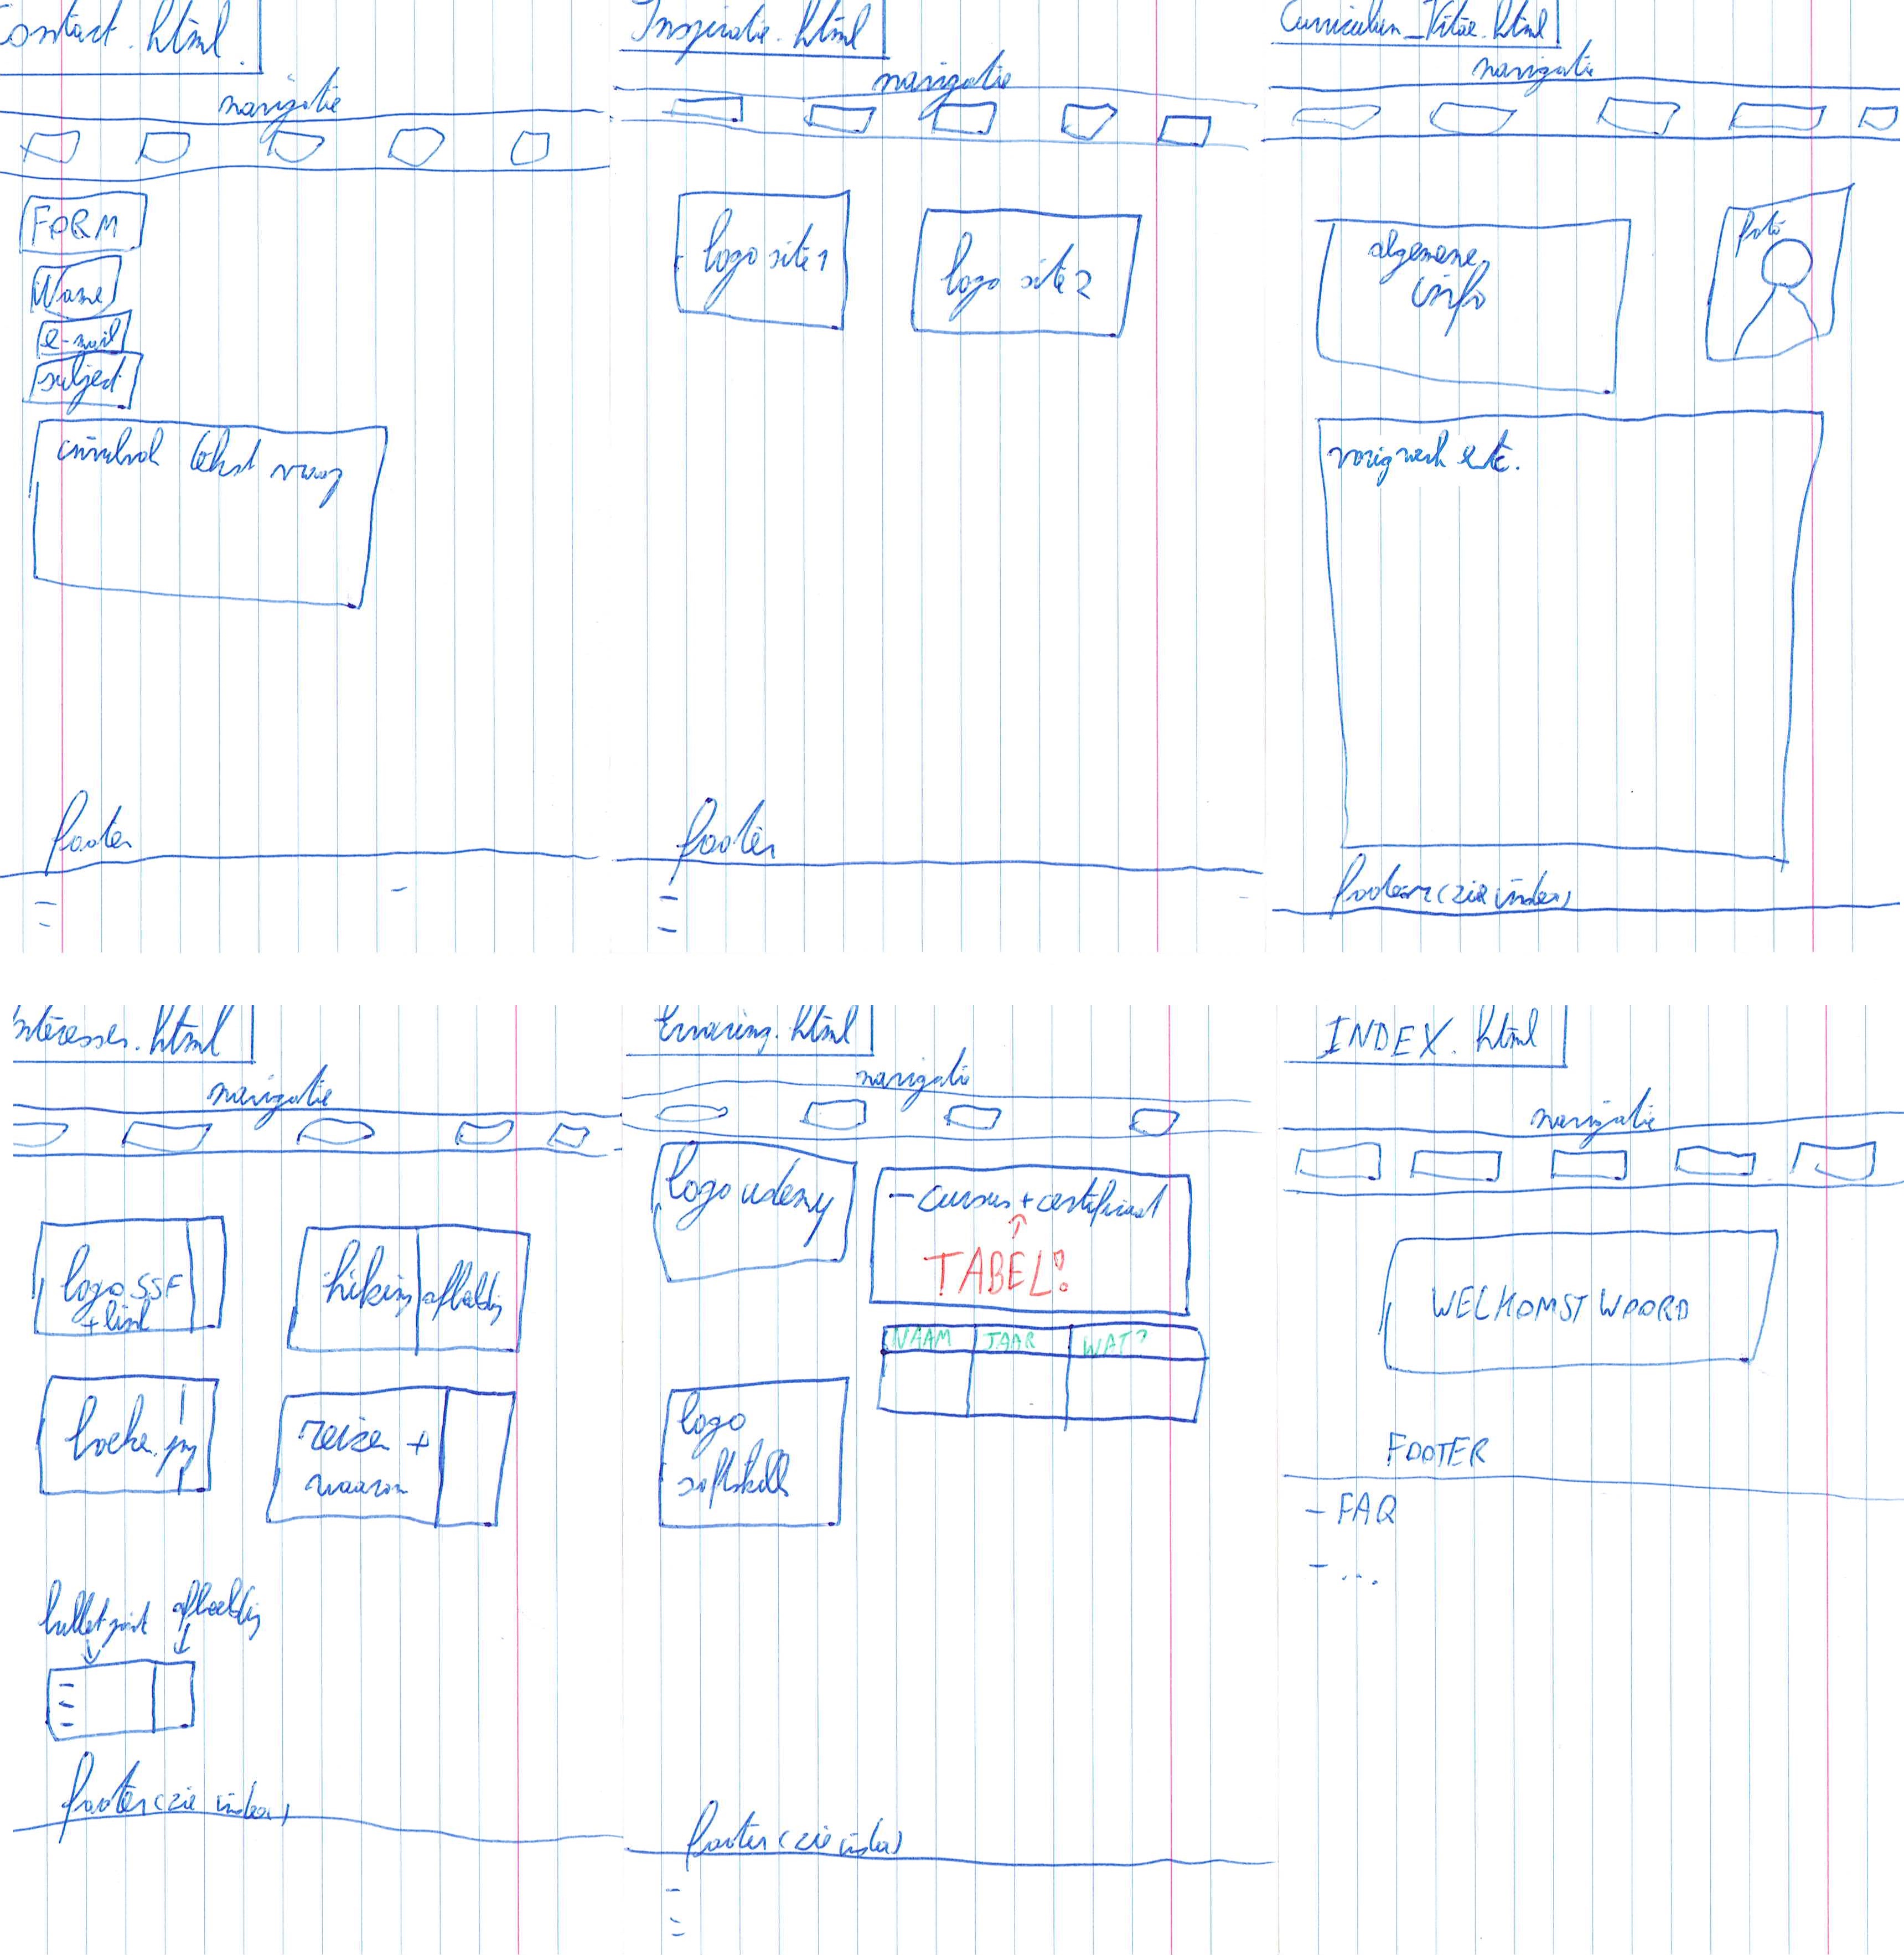 Contact.html
navigatie
FORM
Name
e-mail
subject
invulvak tekst vraag
footer
Inspiratie.html
navigatie
logo site 1
logo site 2
footer
Curriculum_Vitae.html
navigatie
algemene
info
foto
vorig werk etc.
footer (zie index)
Interesses.html
navigatie
logo SSF
+ link
hiking afbeelding
boeken.jpg
reizen +
waarom
bulletpoint afbeelding
footer (zie index)
Ervaring.html
navigatie
logo udemy
- cursus + certificaat
TABEL?
NAAM JAAR WAT?
logo
softskills
footer (zie index)
INDEX.html
navigatie
WELKOMST WOORD
FOOTER
- FAQ
- ...